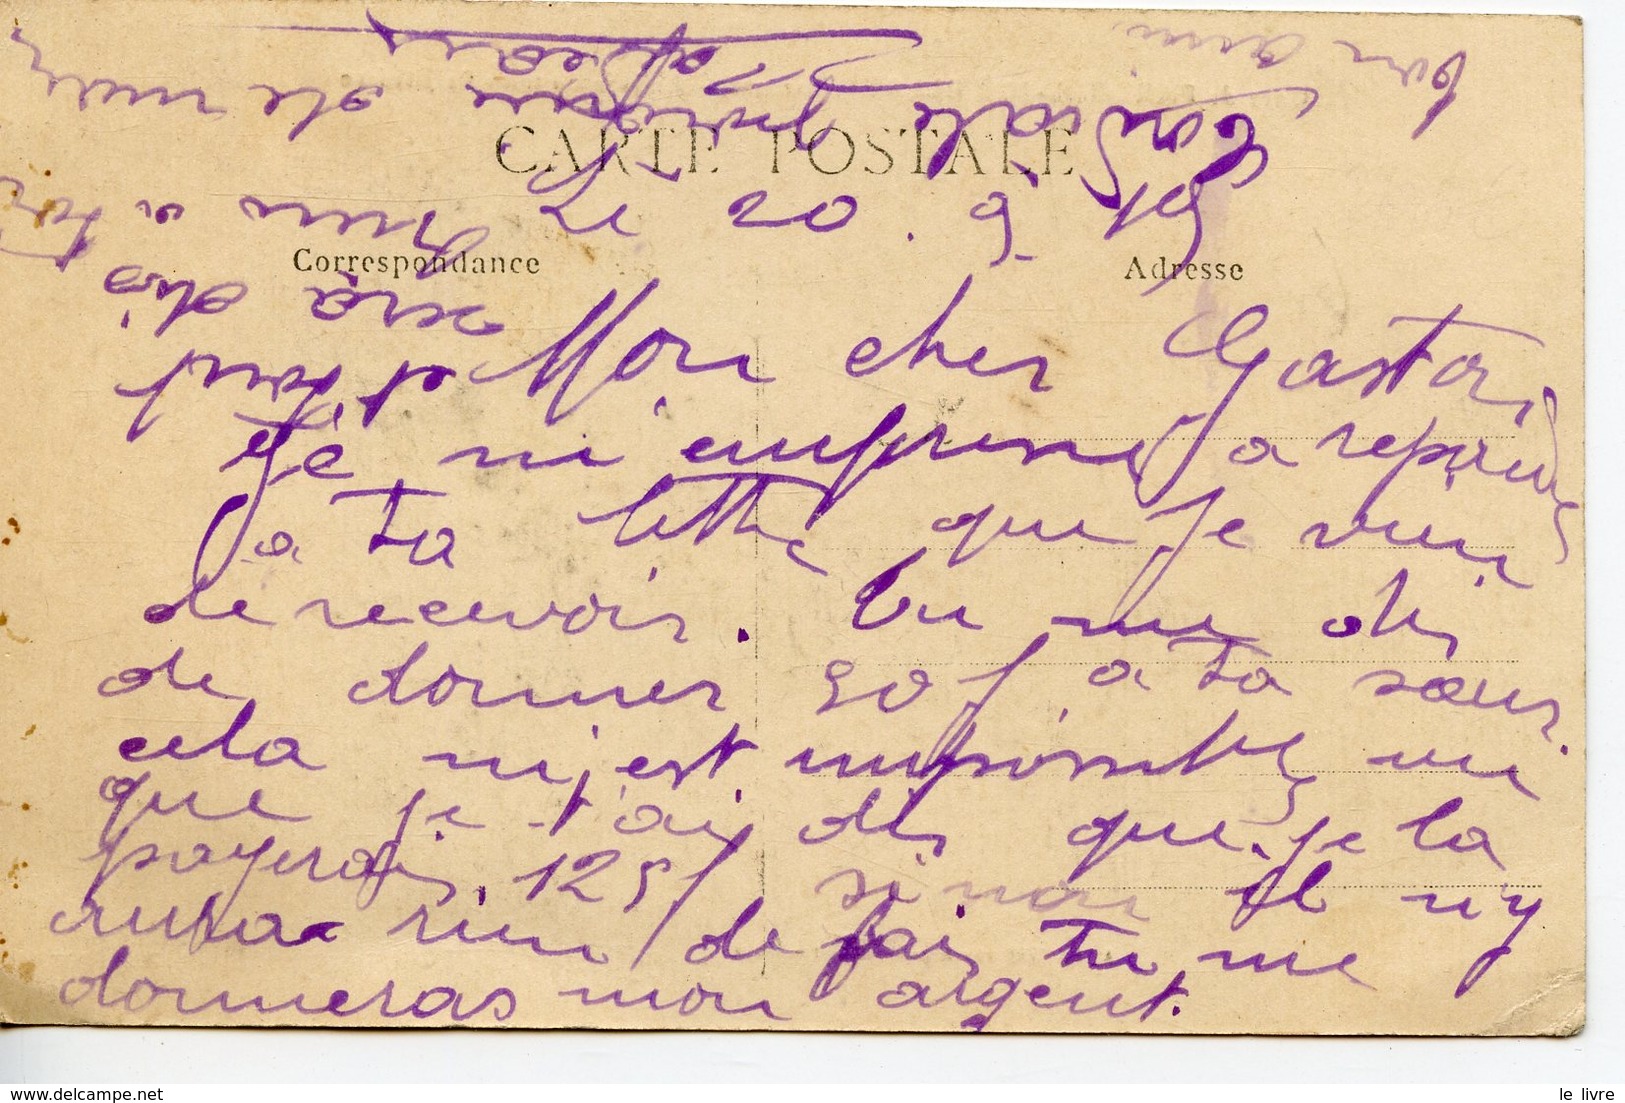 CARTE POSTALE
Correspondance
Adresse
Le 20. 5.
Mon cher Gaston
Je m'empresse a repondre
a ta lettre que je vien
de recevoir. Tu me dis
de donner 50 f a ta sœur.
cela m'est impossible vu
que je t'ai dis que je la
payerais 125 f si non il n'y
aura rien de fais Tu me
donneras mon argent.
et tout
sera dis
a toi
bon ami
Cordiale
le livre